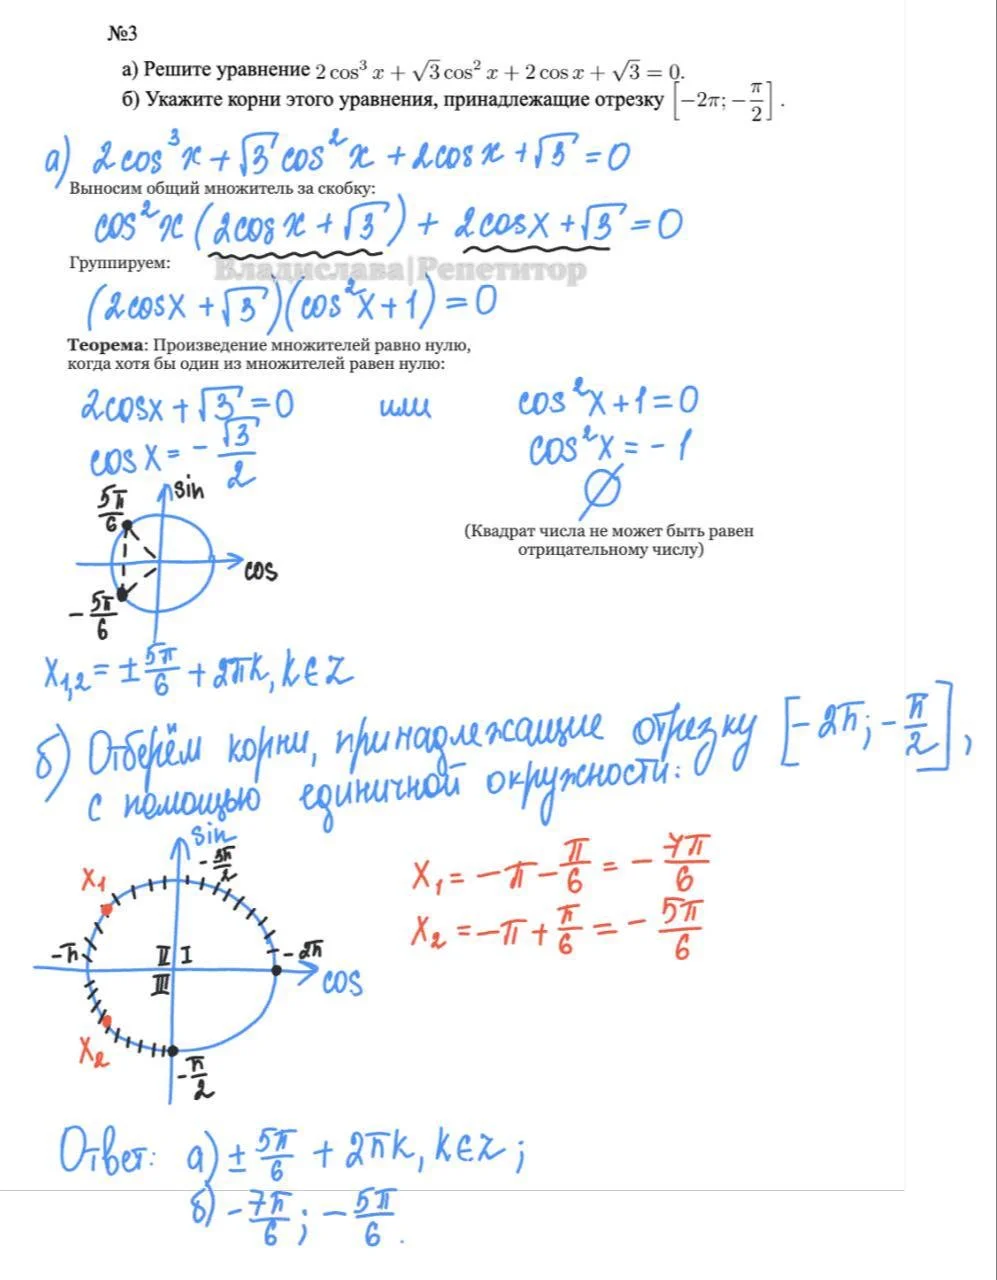 №3
а) Решите уравнение 2 cos³ x + √3 cos² x + 2 cos x + √3 = 0.
б) Укажите корни этого уравнения, принадлежащие отрезку [−2π; −π/2].
а) 2cos³x + √3 cos²x + 2cos x + √3 = 0
Выносим общий множитель за скобку:
cos²x (2cos x + √3) + 2cosx + √3 = 0
Группируем:
Владислава|Репетитор
(2cosx + √3)(cos²x + 1) = 0
Теорема: Произведение множителей равно нулю,
когда хотя бы один из множителей равен нулю:
2cosx + √3 = 0 или cos²x + 1 = 0
cos x = − √3/2 cos²x = − 1
∅
(Квадрат числа не может быть равен
отрицательному числу)
sin
5π/6
cos
−5π/6
x₁,₂ = ± 5π/6 + 2πk, k∈Z
б) Отберём корни, принадлежащие отрезку [−2π; −π/2],
с помощью единичной окружности:
sin
−3π/2
x₁
−π II I −2π
III cos
x₂
−π/2
x₁ = −π − π/6 = − 7π/6
x₂ = −π + π/6 = − 5π/6
Ответ: а) ± 5π/6 + 2πk, k∈Z;
б) −7π/6; −5π/6.